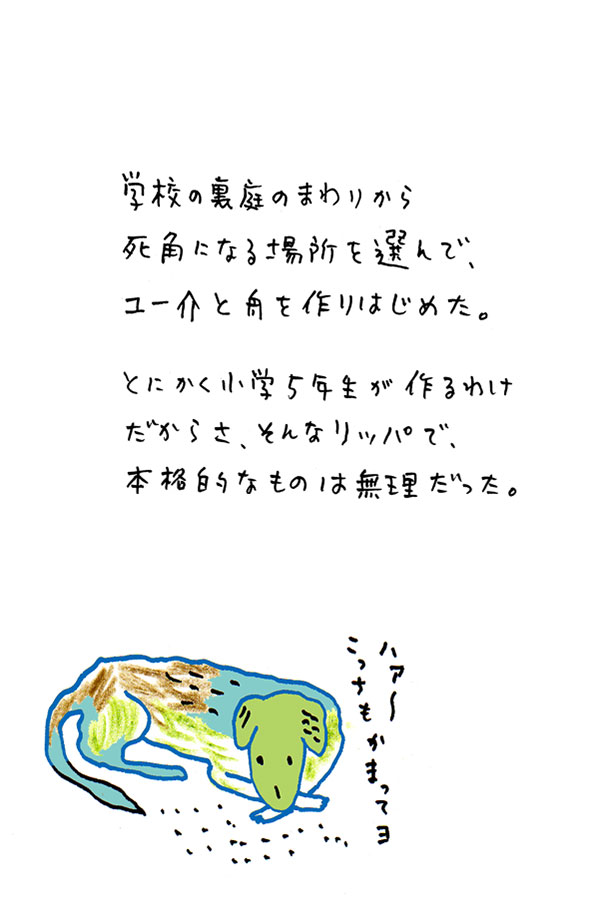 学校の裏庭のまわりから
死角になる場所を選んで、
ユー介と舟を作りはじめた。
とにかく小学5年生が作るわけ
だからさ、そんなリッパで、
本格的なものは無理だった。
ハァ〜
こっちもかまってヨ